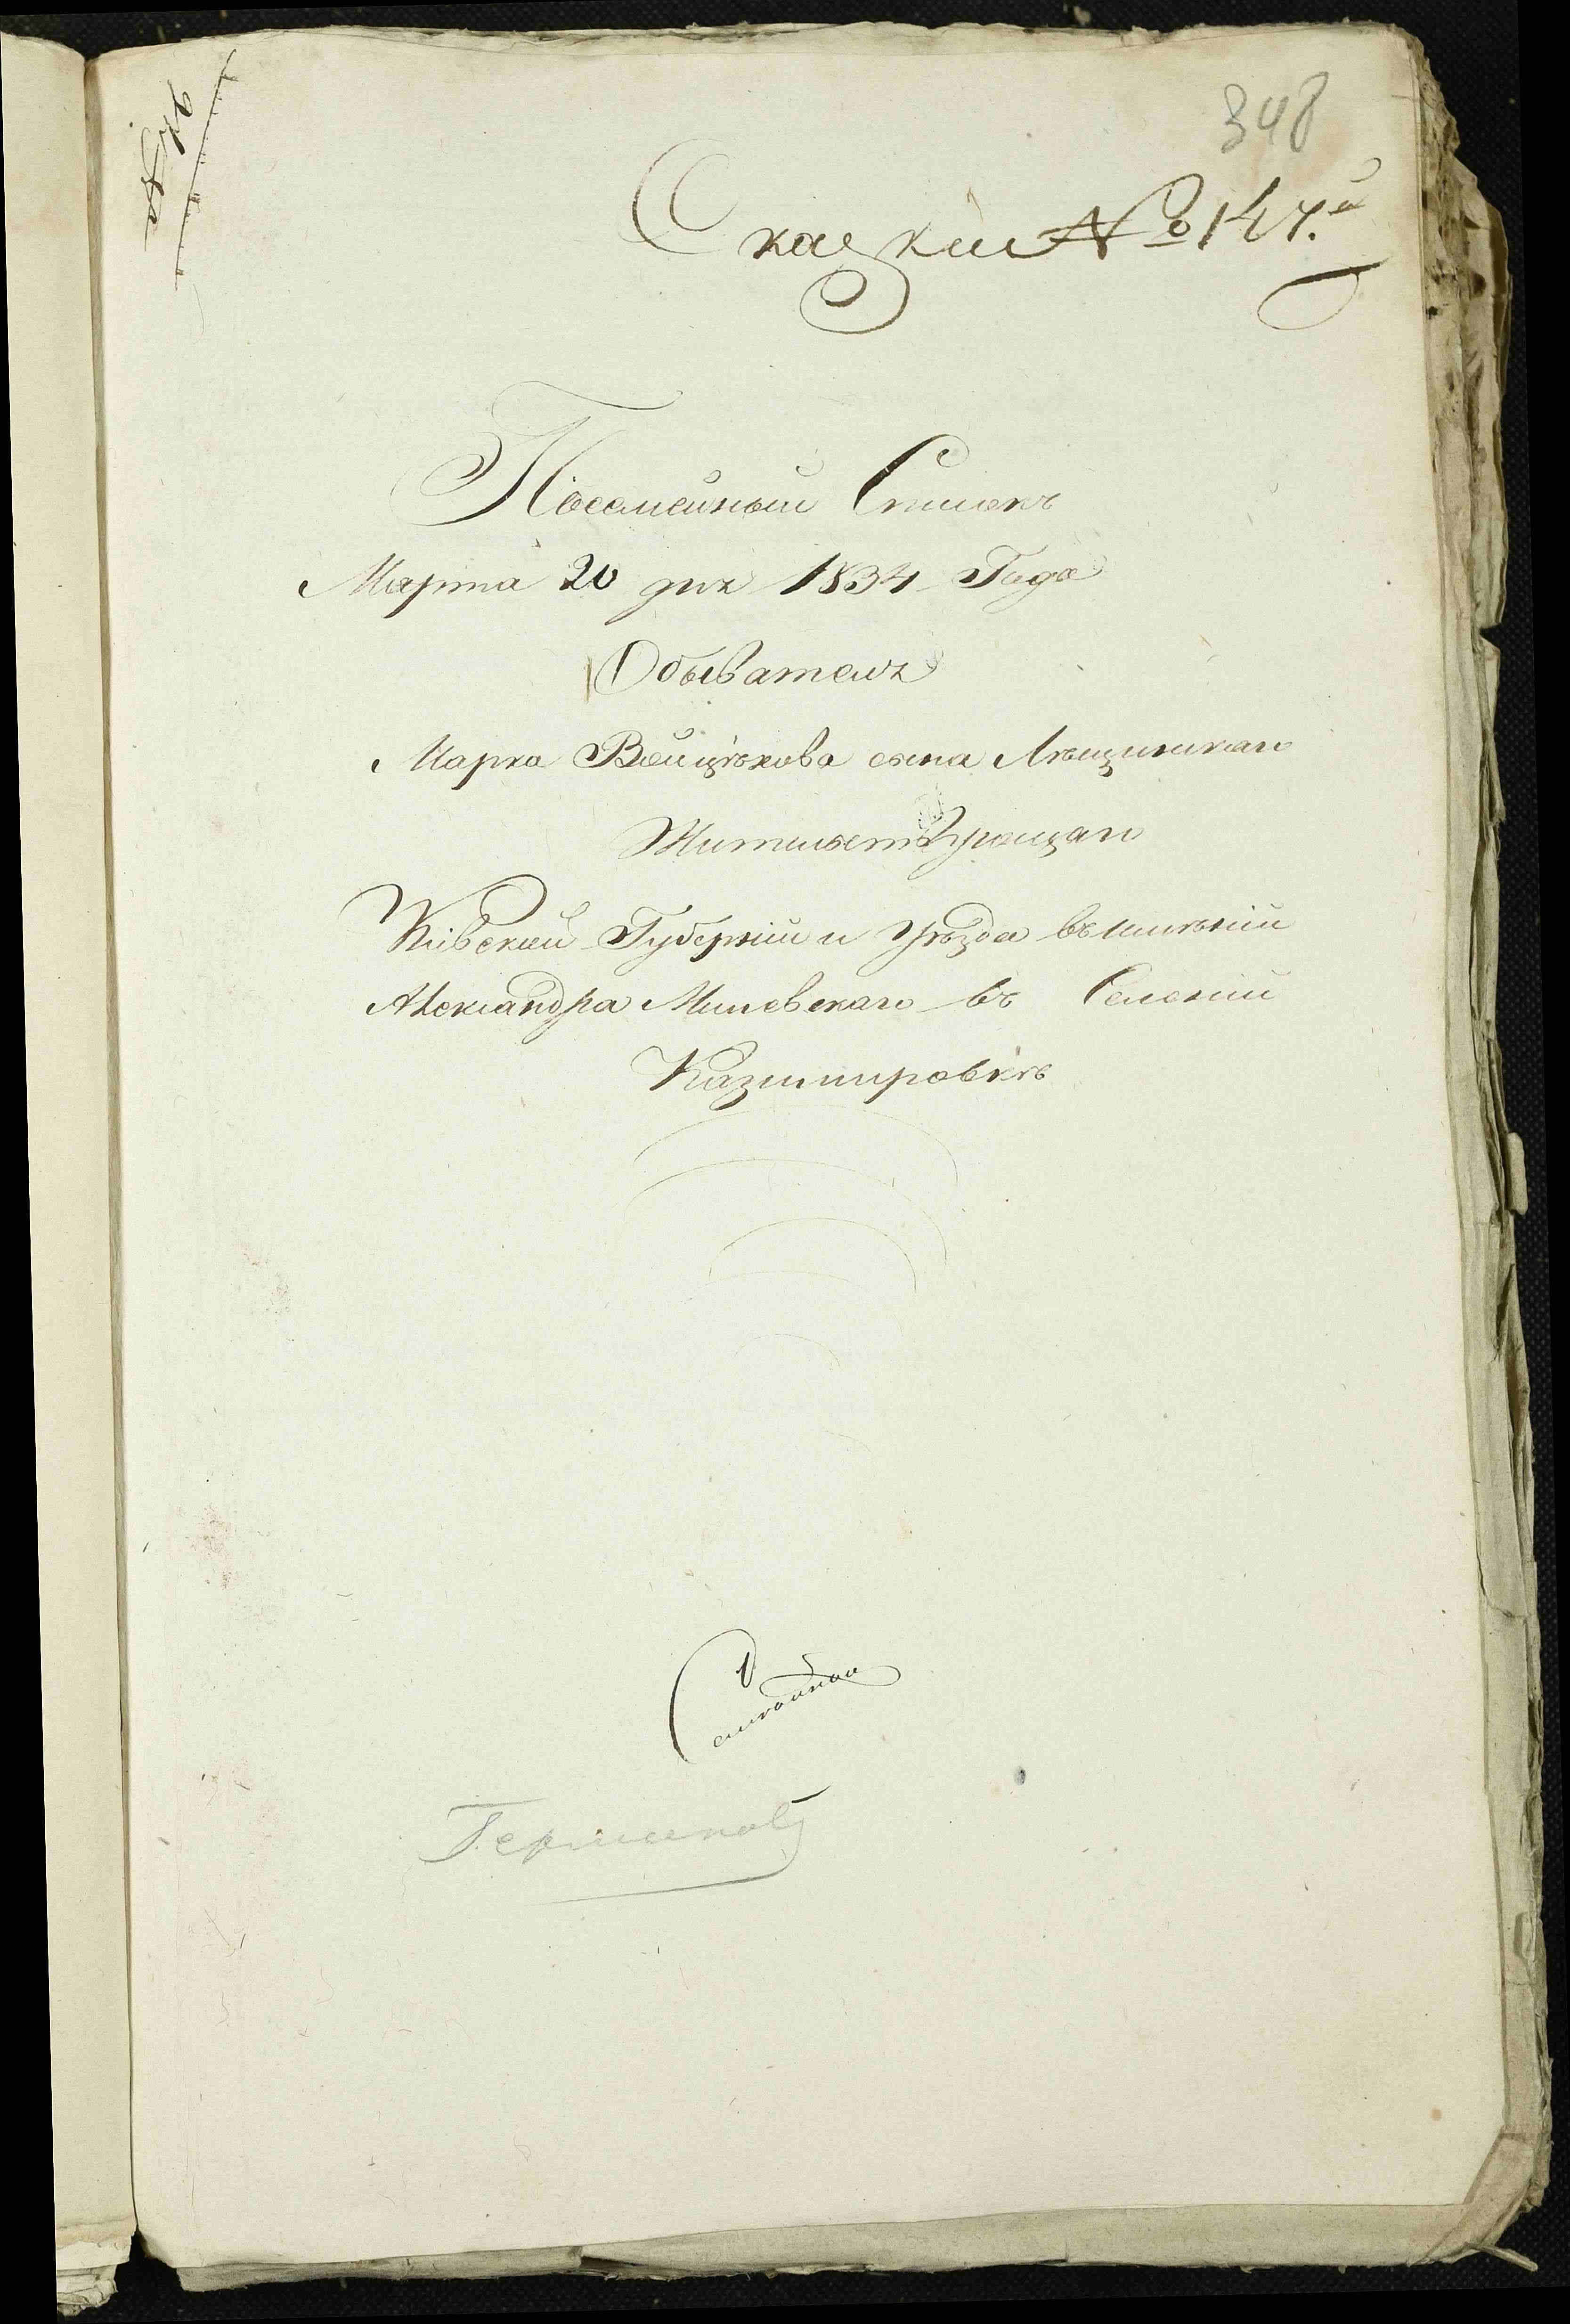 348
Сказки № 147.й
Посемейный Списокъ
Марта 20 дня 1834 Года
Обывателя
Марка Войцѣхова сына Лѣщинскаго
Жительствующаго
Кіевской Губерніи и Уѣзда въ имѣніи
Александра Милевскаго въ Селеніи
Казимировкѣ